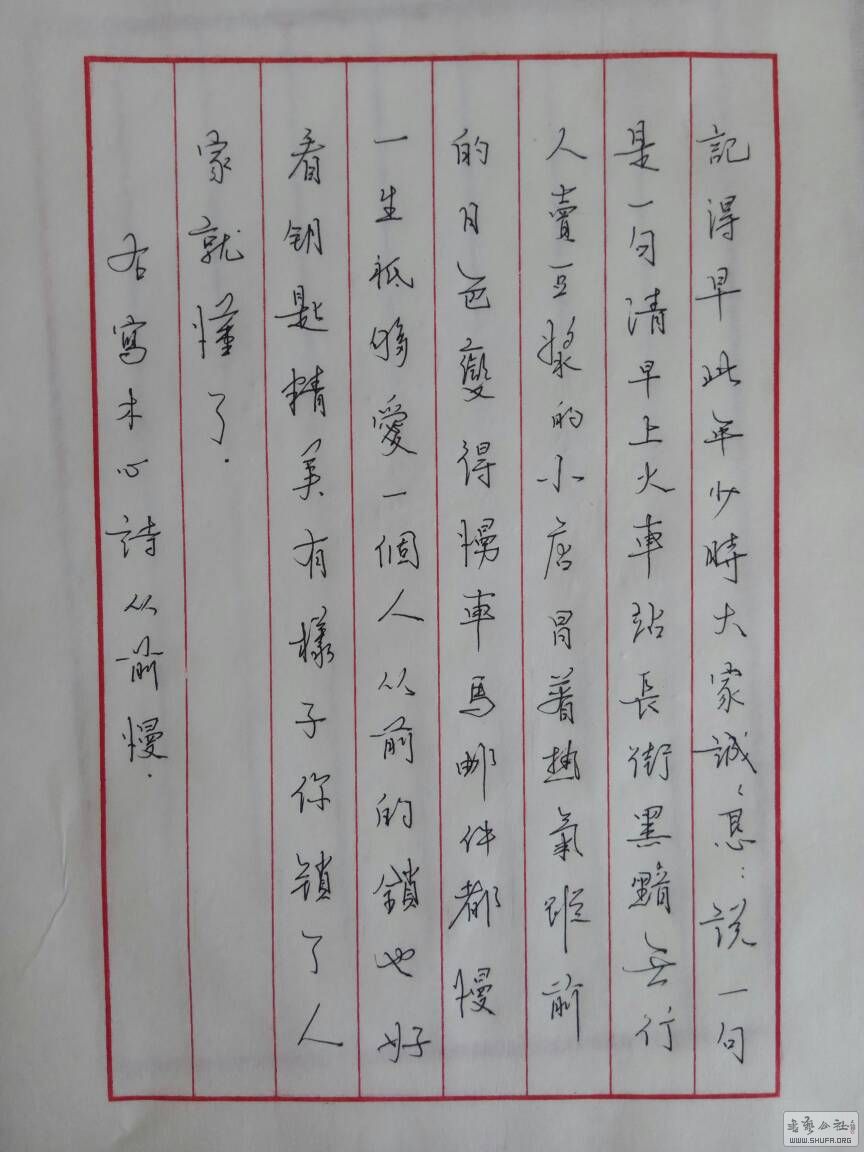 記得早些年少時大家誠〻懇〻說一句
是一句清早上火車站長街黑黯無行
人賣豆漿的小店冒着熱氣從前
的日色變得慢車馬郵件都慢
一生衹夠愛一個人从前的鎖也好
看鈅匙精美有樣子你鎖了人
家就懂了.
右寫木心詩从前慢.
书艺公社
WWW.SHUFA.ORG